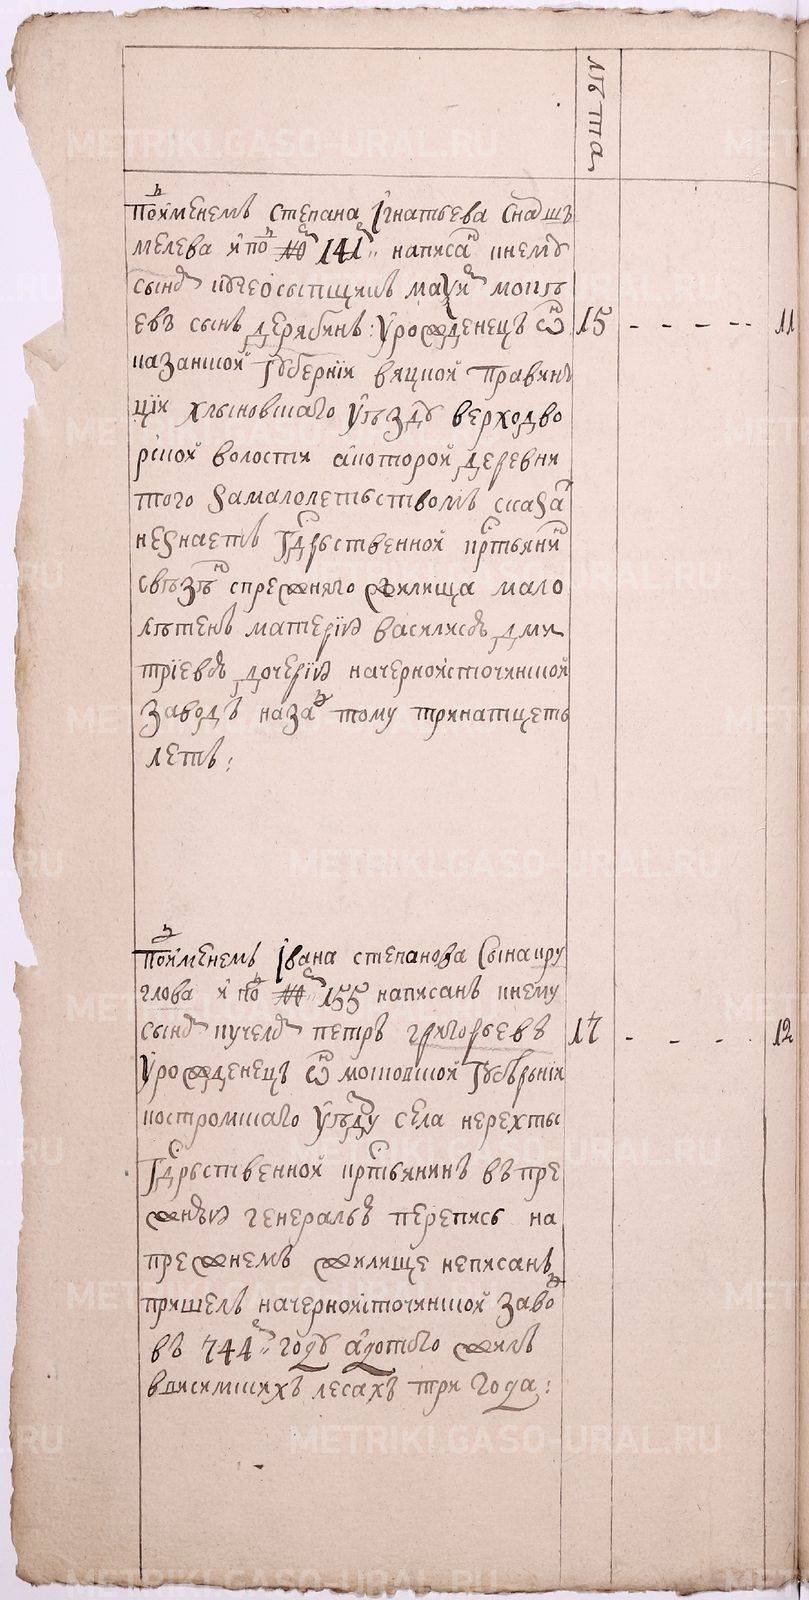 лѣта
Поⷣименемъ Степана Iгнатьева Сна шъ
мелева и поⷣ №ᵐ 141ᵐ написаⷩ кнему
сынъ кучеосыпщикъ маⷯиⷨ моисѣ
евъ сынъ дерябинъ: Урожденецъ ѿ 15 - - - -- 11
казанской Губернїи вяцкой правин
цїи хлыновскаго Уѣзду верходво
рской волости а которой деревни
того замалолетьствомъ сказаⷧ
незнаетъ Гдⷭрьственной крⷭтьяниⷩ
свѣзѣⷩ спрежняго жилища мало
лѣтенъ матерїю василисъ дми
трїевъ дочерїю начерноисточинской
заводъ назаⷣ тому тринатцеть
летъ;
Поⷣименемъ Iвана степанова Сынакру
глова и поⷣ №ᵐ 155 написанъ кнему
сынъ кучелъ петръ григорьевъ 17 - - - - 12
Урожденецъ ѿ московской Губѣрнїи
костромскаго Уѣзду села нерехты
Гдⷭрьственной крⷭтьянинъ въ пре
жнюю генералъ перепись на
прежнемъ жилище неписанъ
пришелъ начерноисточинской завоⷣ
въ 744ᵐ году а дотого жилъ
вписимскихъ лесахъ три года:
METRIKI.GASO-URAL.RU